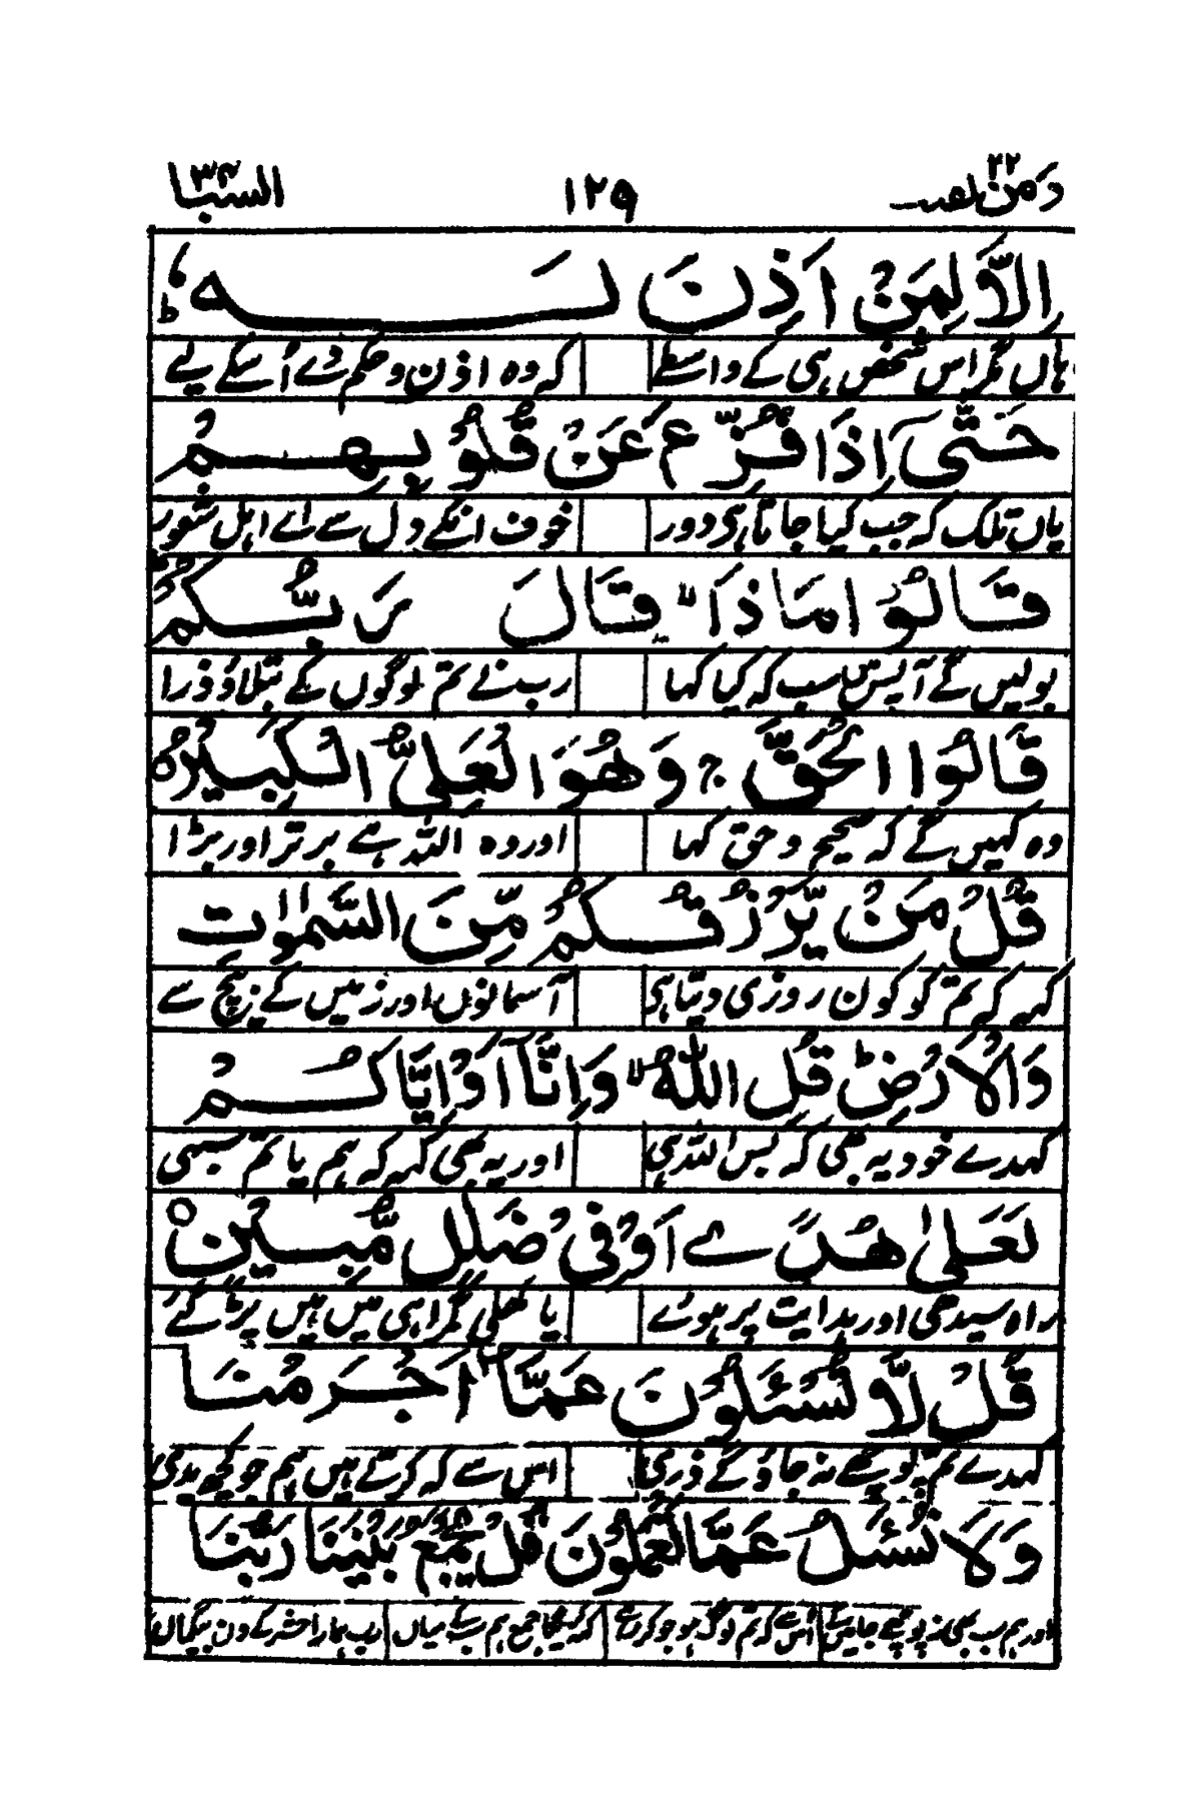 ومن یقنت ۲۲ ۱۲۹ السبا ۳۴
اِلَّا لِمَنْ اَذِنَ لَـهٗ ؕ
ہاں مگر اس شخص ہی کے واسطے کہ وہ اذن و حکم دے اُسکے لیے
حَتّٰٓی اِذَا فُزِّعَ عَنْ قُلُوْبِهِمْ
یاں تلک کہ جب کیا جاتا ہی دور خوف انکے دل سے اے اہل شعور
قَالُوْا مَاذَا ۙ قَالَ رَبُّكُمْ
بولیں گے آپس میں سب کہ کیا کہا رب نے تم لوگوں کے بتلاؤ ذرا
قَالُوا الْحَقَّ ۚ وَهُوَ الْعَلِیُّ الْكَبِیْرُ ○
وہ کہیں گے کہ صحیح و حق کہا اور وہ اللہ ہے برتر اور بڑا
قُلْ مَنْ یَّرْزُقُكُمْ مِّنَ السَّمٰوٰتِ
کہہ کہ تم کو کون روزی دیتا ہی آسمانوں اور زمیں کے بیچ سے
وَالْاَرْضِ ؕ قُلِ اللّٰهُ ۙ وَاِنَّآ اَوْ اِیَّاكُمْ
کہدے خود یہ بھی کہ بس اللہ ہی اور یہ بھی کہہ کہ ہم یا تم سبھی
لَعَلٰی هُدًی اَوْ فِیْ ضَلٰلٍ مُّبِیْنٍ ○
راہ سیدھی اور ہدایت پر ہوئے یا کھلی گمراہی میں ہیں پڑ گئے
قُلْ لَّا تُسْئَلُوْنَ عَمَّآ اَجْرَمْنَا
کہدے تم پوچھے نہ جاؤ گے ذری اس سے کہ کرتے ہیں ہم جو کچھ بدی
وَلَا نُسْئَلُ عَمَّا تَعْمَلُوْنَ قُلْ یَجْمَعُ بَیْنَنَا رَبُّنَا
اور ہم سب بھی نہ پوچھے جائیں گے اس سے کہ تم لوگ ہو جو کر رہے کہ یکجا جمع ہم سب کے میاں رب ہمارا حشر کے دن بیگماں